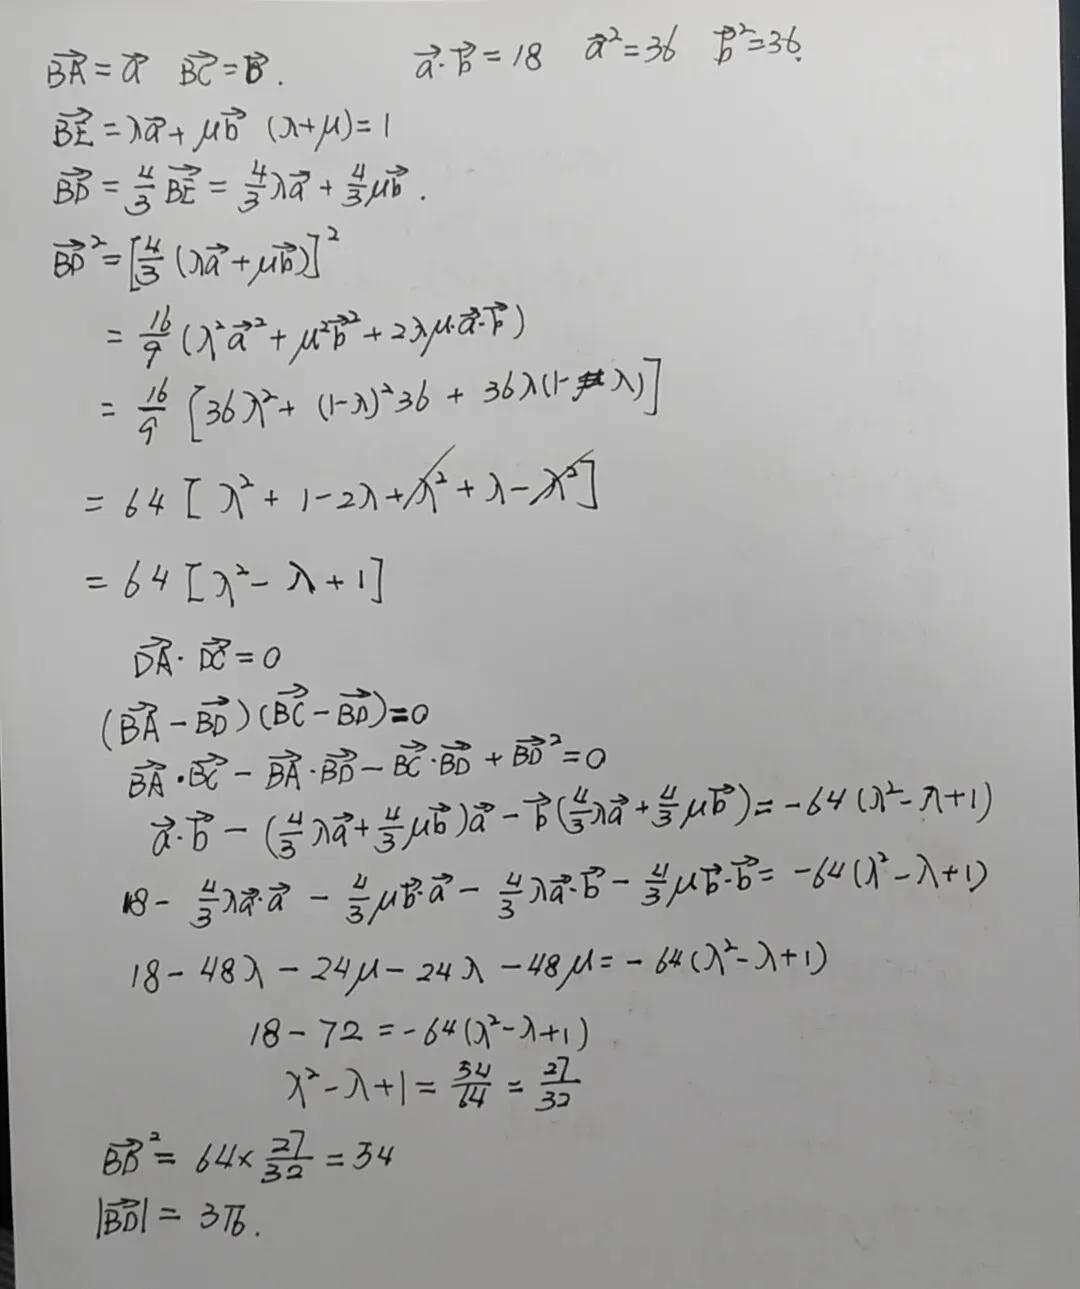 $\overrightarrow{BA}=\vec{a}$ $\overrightarrow{BC}=\vec{b}$. $\vec{a}\cdot\vec{b}=18$ $\vec{a}^2=36$ $\vec{b}^2=36$.
$\overrightarrow{BE}=\lambda\vec{a}+\mu\vec{b}$ $(\lambda+\mu)=1$
$\overrightarrow{BD}=\frac{4}{3}\overrightarrow{BE}=\frac{4}{3}\lambda\vec{a}+\frac{4}{3}\mu\vec{b}$.
$\overrightarrow{BD}^2=[\frac{4}{3}(\lambda\vec{a}+\mu\vec{b})]^2$
$=\frac{16}{9}(\lambda^2\vec{a}^2+\mu^2\vec{b}^2+2\lambda\mu\cdot\vec{a}\cdot\vec{b})$
$=\frac{16}{9}[36\lambda^2+(1-\lambda)^2 36+36\lambda(1-\lambda)]$
$=64[\lambda^2+1-2\lambda+\cancel{\lambda^2}+\lambda-\cancel{\lambda^2}]$
$=64[\lambda^2-\lambda+1]$
$\overrightarrow{DA}\cdot\overrightarrow{DC}=0$
$(\overrightarrow{BA}-\overrightarrow{BD})(\overrightarrow{BC}-\overrightarrow{BD})=0$
$\overrightarrow{BA}\cdot\overrightarrow{BC}-\overrightarrow{BA}\cdot\overrightarrow{BD}-\overrightarrow{BC}\cdot\overrightarrow{BD}+\overrightarrow{BD}^2=0$
$\vec{a}\cdot\vec{b}-(\frac{4}{3}\lambda\vec{a}+\frac{4}{3}\mu\vec{b})\vec{a}-\vec{b}(\frac{4}{3}\lambda\vec{a}+\frac{4}{3}\mu\vec{b})=-64(\lambda^2-\lambda+1)$
$18-\frac{4}{3}\lambda\vec{a}\cdot\vec{a}-\frac{4}{3}\mu\vec{b}\cdot\vec{a}-\frac{4}{3}\lambda\vec{a}\cdot\vec{b}-\frac{4}{3}\mu\vec{b}\cdot\vec{b}=-64(\lambda^2-\lambda+1)$
$18-48\lambda-24\mu-24\lambda-48\mu=-64(\lambda^2-\lambda+1)$
$18-72=-64(\lambda^2-\lambda+1)$
$\lambda^2-\lambda+1=\frac{54}{64}=\frac{27}{32}$
$\overrightarrow{BD}^2=64\times\frac{27}{32}=54$
$|\overrightarrow{BD}|=3\sqrt{6}$.